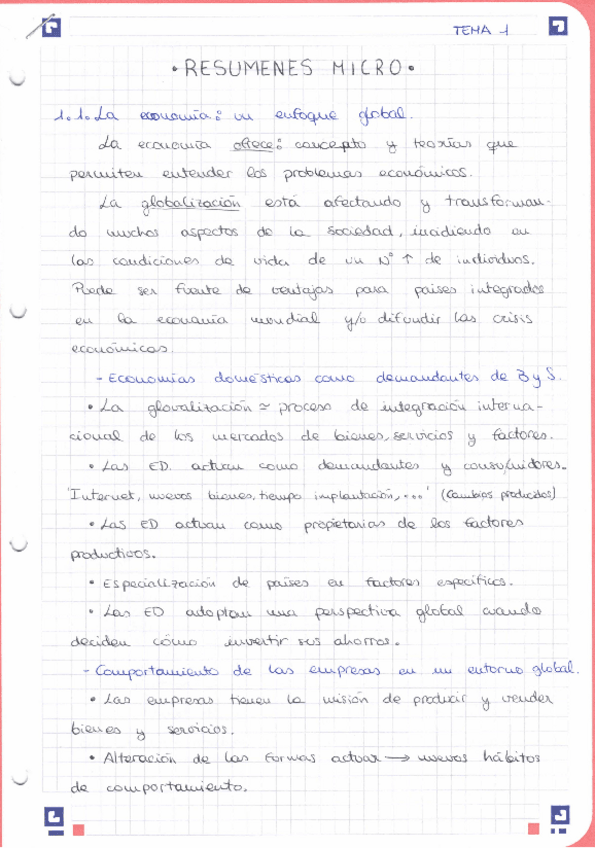 TEMA 1
• RESUMENES MICRO •
1.1. La economía: un enfoque global.
La economía ofrece: concepto y teorías que
permiten entender los problemas económicos.
La globalización está afectando y transforman-
do muchos aspectos de la sociedad, incidiendo en
las condiciones de vida de un Nº ↑ de individuos.
Puede ser fuente de ventajas para países integrados
en la economía mundial y/o difundir las crisis
económicas.
- Economías domésticas como demandantes de B y S.
• La glovalización ≃ proceso de integración interna-
cional de los mercados de bienes, servicios y factores.
• Las ED. actuan como demandantes y consumidores.
'Internet, nuevos bienes, tiempo implantación, ...' (Cambios producidos)
• Las ED actuan como propietarias de los factores
productivos.
• Especialización de países en factores específicos.
• Las ED adoptan una perspectiva global cuando
deciden cómo invertir sus ahorros.
- Comportamiento de las empresas en un entorno global.
• Las empresas tienen la misión de producir y vender
bienes y servicios.
• Alteración de las formas actuar → nuevos hábitos
de comportamiento.